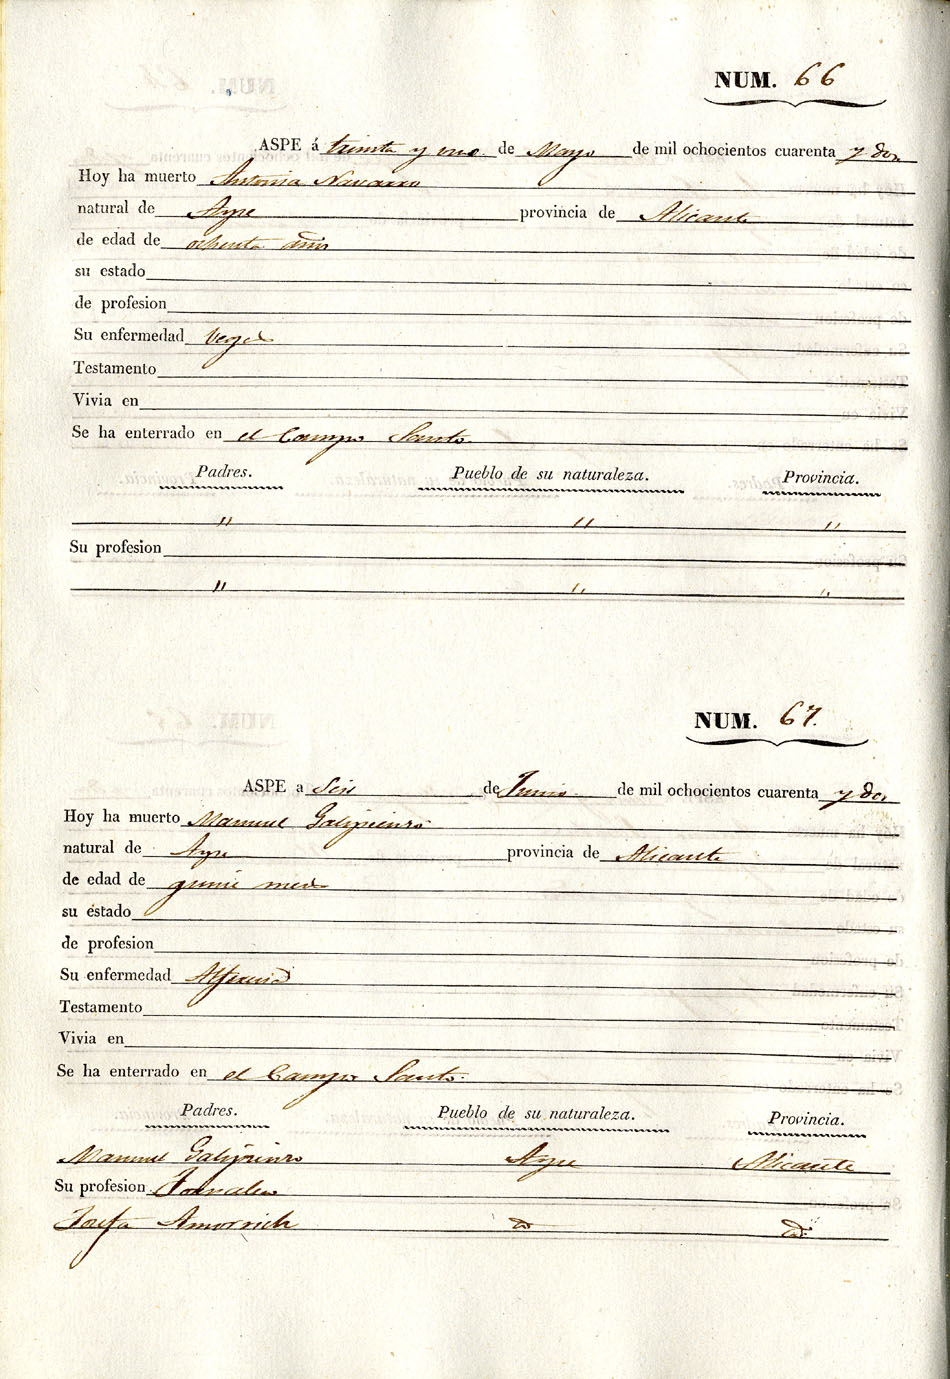 NUM. 66
ASPE á treinta y uno de Mayo de mil ochocientos cuarenta y dos
Hoy ha muerto Antonia Navarro
natural de Aspe provincia de Alicante
de edad de ochenta años
su estado
de profesion
Su enfermedad Vegez
Testamento
Vivia en
Se ha enterrado en el Campo Santo
Padres. Pueblo de su naturaleza. Provincia.
" " "
Su profesion
" " "
NUM. 67.
ASPE a Seis de Junio de mil ochocientos cuarenta y dos
Hoy ha muerto Manuel Galipienzo
natural de Aspe provincia de Alicante
de edad de quince meses
su estado
de profesion
Su enfermedad Alferecia
Testamento
Vivia en
Se ha enterrado en el Campo Santo.
Padres. Pueblo de su naturaleza. Provincia.
Manuel Galipienzo Aspe Alicante
Su profesion Jornalero
Josefa